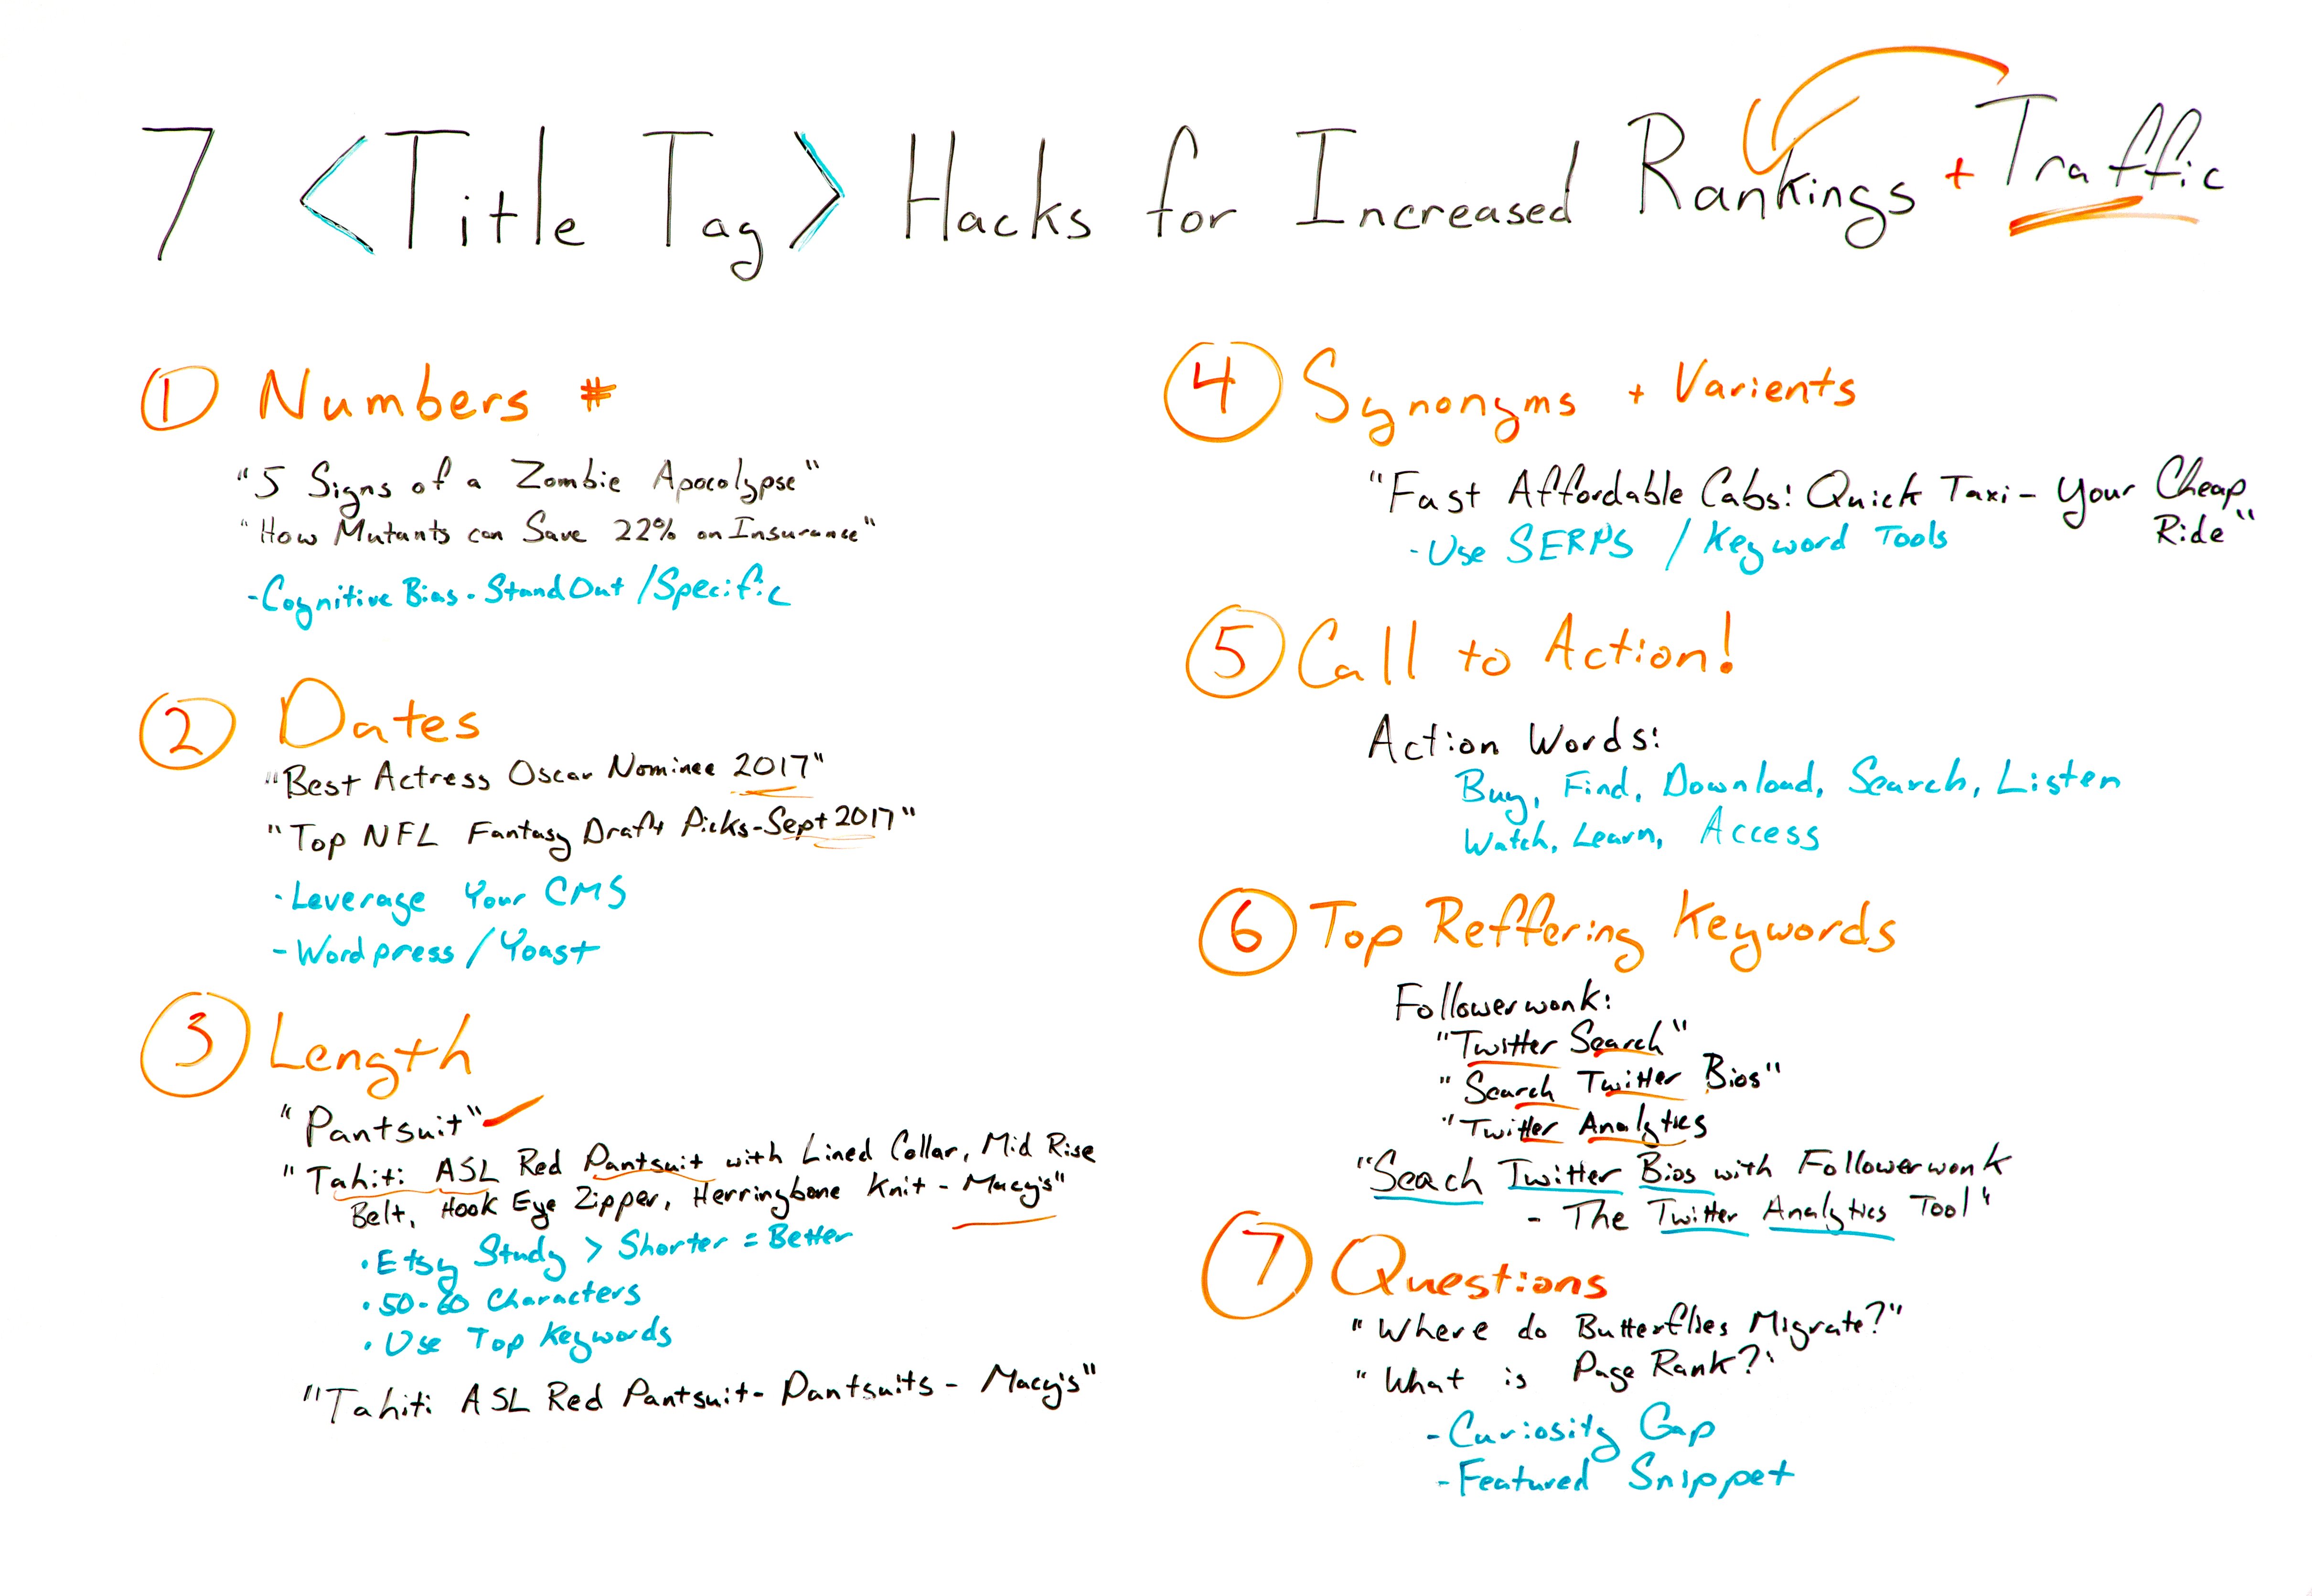 7 <Title Tag> Hacks for Increased Rankings + Traffic
1 Numbers #
"5 Signs of a Zombie Apocolypse"
"How Mutants can Save 22% on Insurance"
-Cognitive Bias - Stand Out / Specific
2 Dates
"Best Actress Oscar Nominee 2017"
"Top NFL Fantasy Draft Picks-Sept 2017"
-Leverage Your CMS
-Wordpress / Yoast
3 Length
"Pantsuit"
"Tahiti ASL Red Pantsuit with Lined Collar, Mid Rise
Belt, Hook Eye Zipper, Herringbone Knit - Macy's"
• Etsy Study > Shorter = Better
• 50-60 Characters
• Use Top Keywords
"Tahiti ASL Red Pantsuit- Pantsuits - Macy's"
4 Synonyms + Varients
"Fast Affordable Cabs: Quick Taxi - Your Cheap
Ride"
-Use SERPS / Keyword Tools
5 Call to Action!
Action Words:
Buy, Find, Download, Search, Listen
Watch, Learn, Access
6 Top Reffering Keywords
Followerwonk:
"Twitter Search"
"Search Twitter Bios"
"Twitter Analytics
"Search Twitter Bios with Followerwonk
- The Twitter Analytics Tool"
7 Questions
"Where do Butterflies Migrate?"
"What is Page Rank?"
-Curiosity Gap
-Featured Snippet